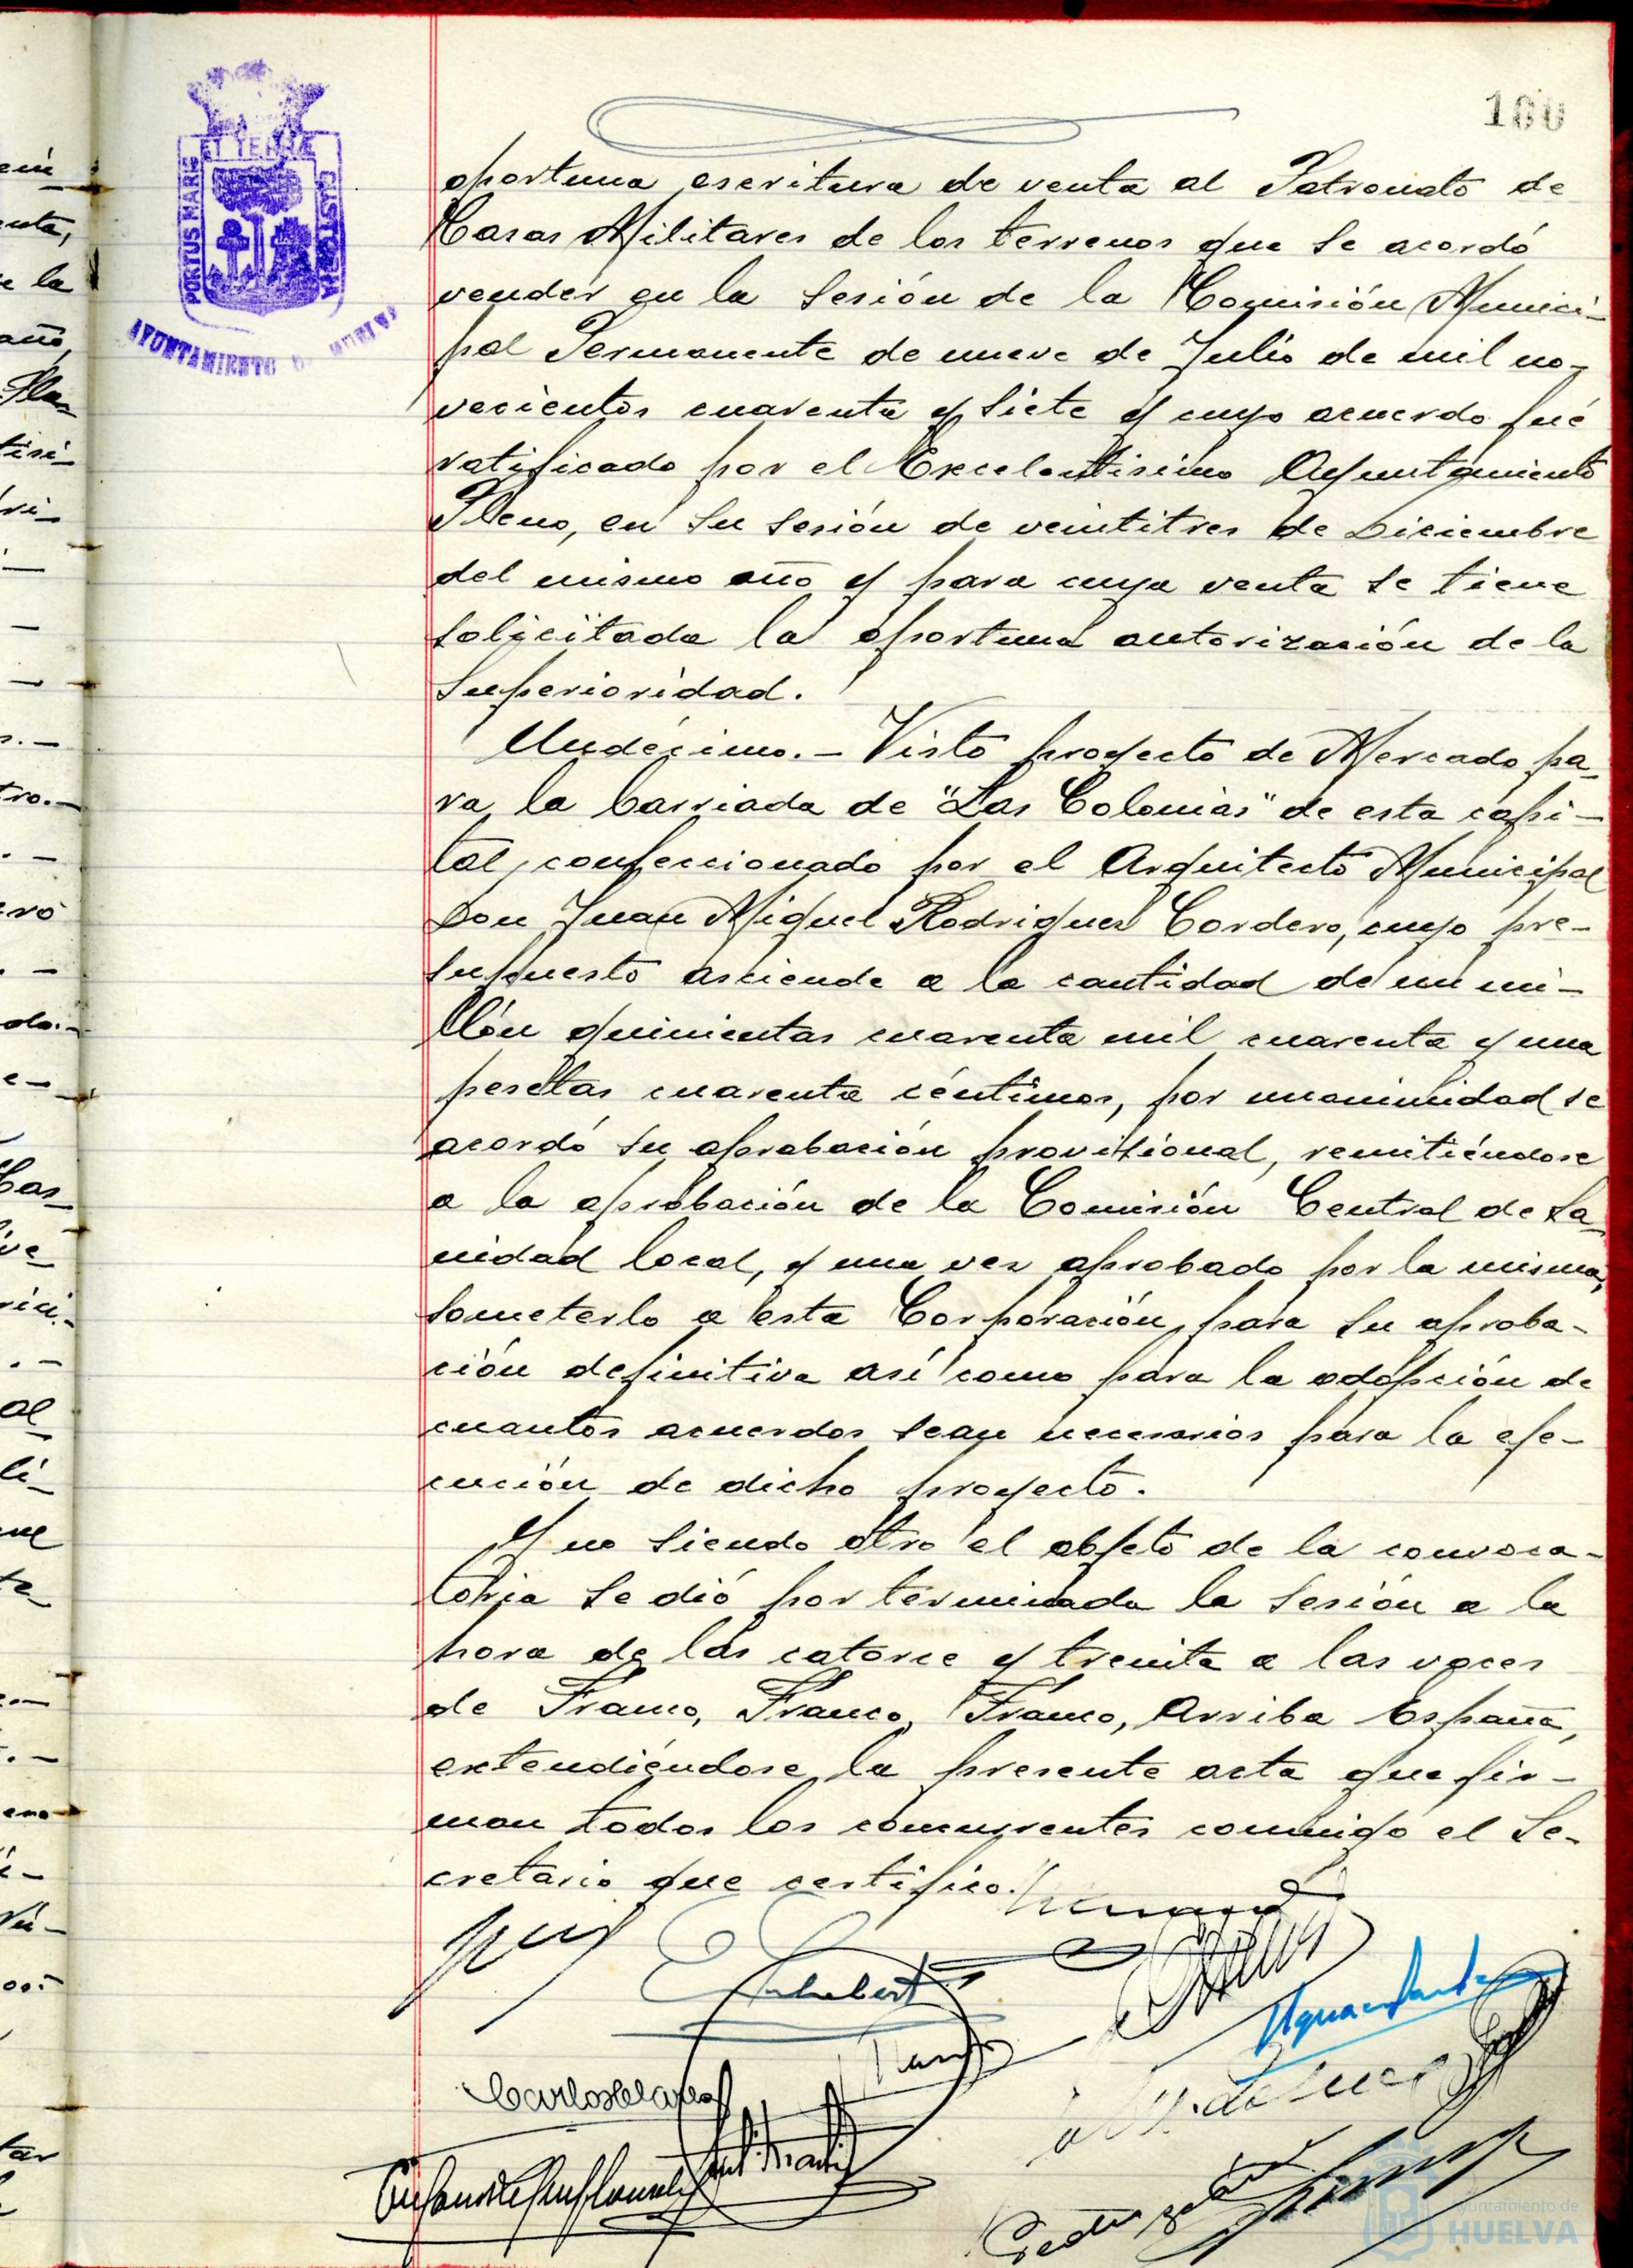 160
PORTUS MARIS
ET TERRÆ
CUSTODIA
AYUNTAMIENTO DE HUELVA
oportuna escritura de venta al Patronato de
Casas Militares de los terrenos que se acordó
vender en la Sesión de la Comisión Munici-
pal Permanente de nueve de Julio de mil no-
vecientos cuarenta y siete y cuyo acuerdo fué
ratificado por el Excelentísimo Ayuntamiento
Pleno, en su sesión de veintitres de Diciembre
del mismo año y para cuya venta se tiene
solicitada la oportuna autorización de la
Superioridad.
Undécimo.- Visto proyecto de Mercado pa-
ra la barriada de "Las Colonias" de esta capi-
tal, confeccionado por el Arquitecto Municipal
Don Juan Miguel Rodriguez Cordero, cuyo pre-
supuesto asciende a la cantidad de un mi-
llón quinientas cuarenta mil cuarenta y una
pesetas cuarenta céntimos, por unanimidad se
acordó su aprobación provisional, remitiéndose
a la aprobación de la Comisión Central de Sa-
nidad local, y una vez aprobado por la misma,
someterlo a esta Corporación, para su aproba-
ción definitiva así como para la adopción de
cuantos acuerdos sean necesarios para la eje-
cución de dicho proyecto.
Y no siendo otro el objeto de la convoca-
toria se dió por terminada la Sesión a la
hora de las catorce y treinta a las voces
de Franco, Franco, Franco, Arriba España,
extendiéndose la presente acta que fir-
man todos los concurrentes conmigo el Se-
cretario que certifico.
Ayuntamiento de
HUELVA